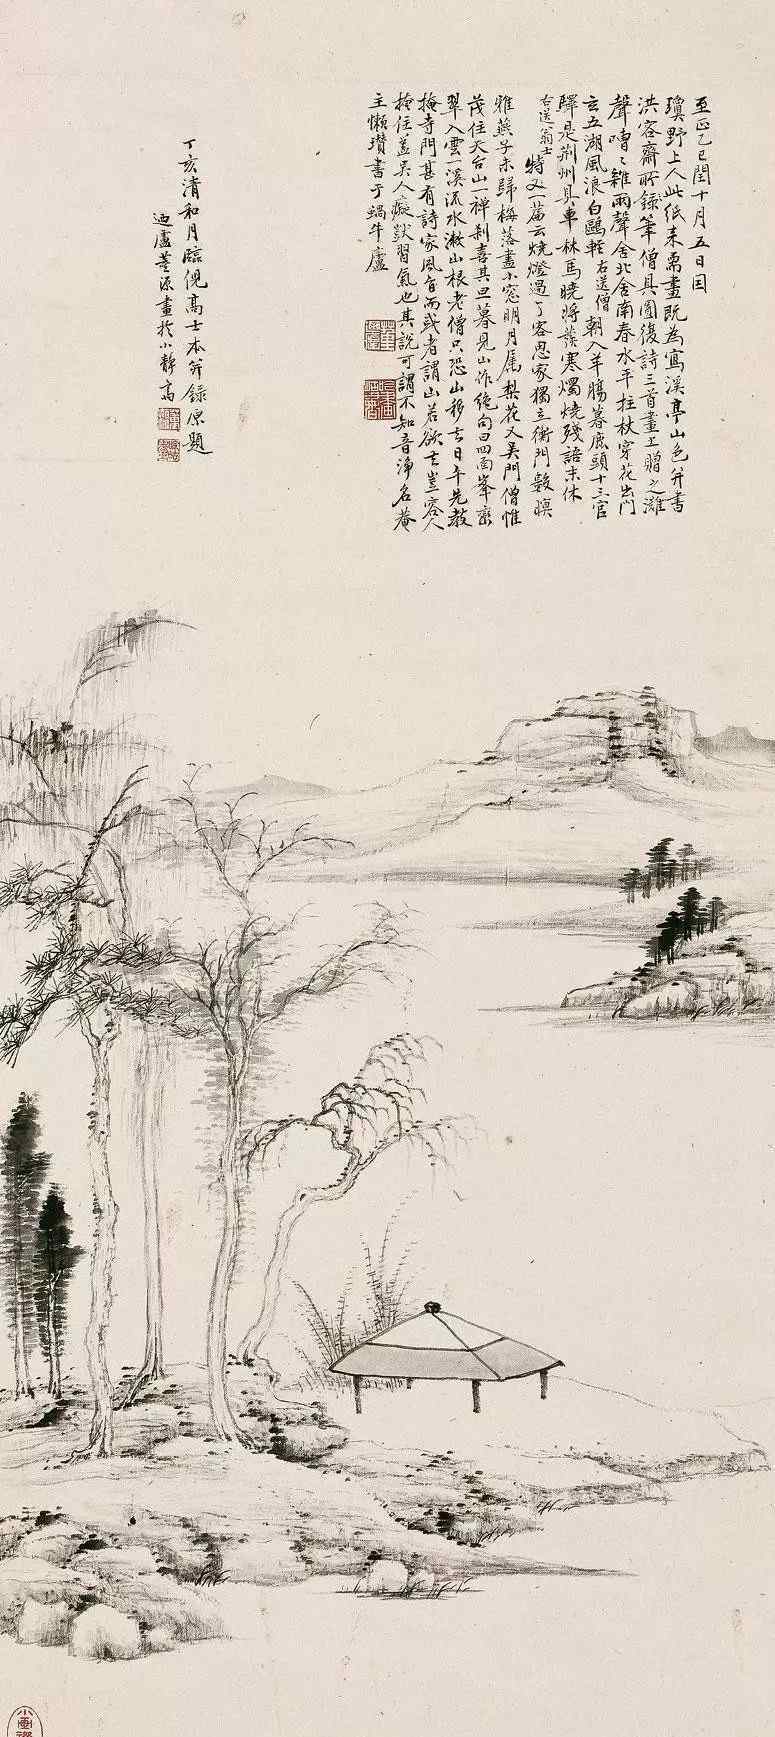 至正乙巳閏十月五日因
瓊野上人此紙來需畫既為寫溪亭山色并書
洪容齋所錄筆僧具圓復詩三首畫上贈之灘
聲嘈嘈雜雨聲舍北舍南春水平拄杖穿花出門
去五湖風浪白鷗輕右送僧朝入羊腸暮鹿頭十三官
驛是荊州具車秣馬曉將發寒燭燒殘語未休
右送翁士特又一篇云燒燈過了客思家獨立衡門數暝
雅燕子未歸梅落盡小窓明月屬梨花又吴門僧惟
茂住天台山一禪刹喜其旦暮見山作絶句曰四面峯巒
翠入雲一溪流水漱山根老僧只恐山移去日午先教
掩寺門甚有詩家風旨而或者謂山若欲去豈容人
掩住蓋吴人癡獃習氣也其說可謂不知音淨名菴
主懶瓚書于蝸牛廬
丁亥清和月臨倪高士本并錄原題
迺盧董源畫於小靜高